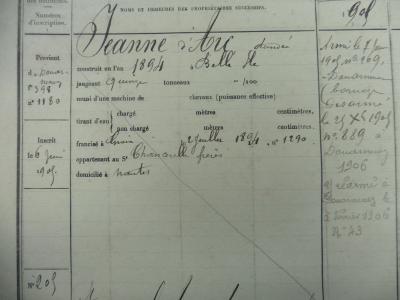 Numéros
d'inscription.
NOMS ET DEMEURES DES PROPRIÉTAIRES SUCCESSIFS.
Jeanne d'Arc dundée
construit en l'an 1894 Belle Ile
jaugeant quinze tonneaux " /100
muni d'une machine de chevaux (puissance effective)
tirant d'eau chargé mètres centimètres.
non chargé mètres centimètres.
francisé à 2 Juillet 1894 n° 1290.
appartenant au St Chancerelle frères
domicilié à nantes
Provient
de Douarnenez
f° 398
n° 1180
Inscrit
le 6 Juin
1905
N° 205
905
Armé le 7 Juin
1905 n° 269
Douarnenez
bornage
Désarmé
le 21 XI 1905
N° 889 à
Douarnenez
1906
Réarmé à
Douarnenez le
Février 1906
N° 43